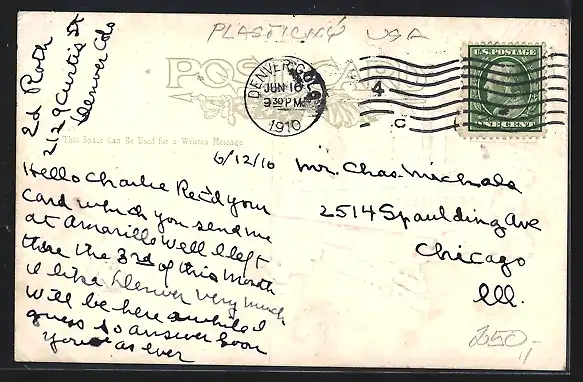 PLASTICKÝ USA
POST CARD
DENVER, COLO.
JUN 10
9 30 PM
1910
4
C
U.S. POSTAGE
ONE CENT
Ed Roth
2129 Curtis St
Denver Colo
This Space Can Be Used for a Written Message.
6/12/10
Hello Charlie Rec'd your
card which you send me
at Amarillo well I left
there the 3rd of this month
I like Denver very much
will be here awhile I
guess so answer soon
Your as ever
Mr. Chas.
2514 Spaulding Ave
Chicago
Ill.
250-